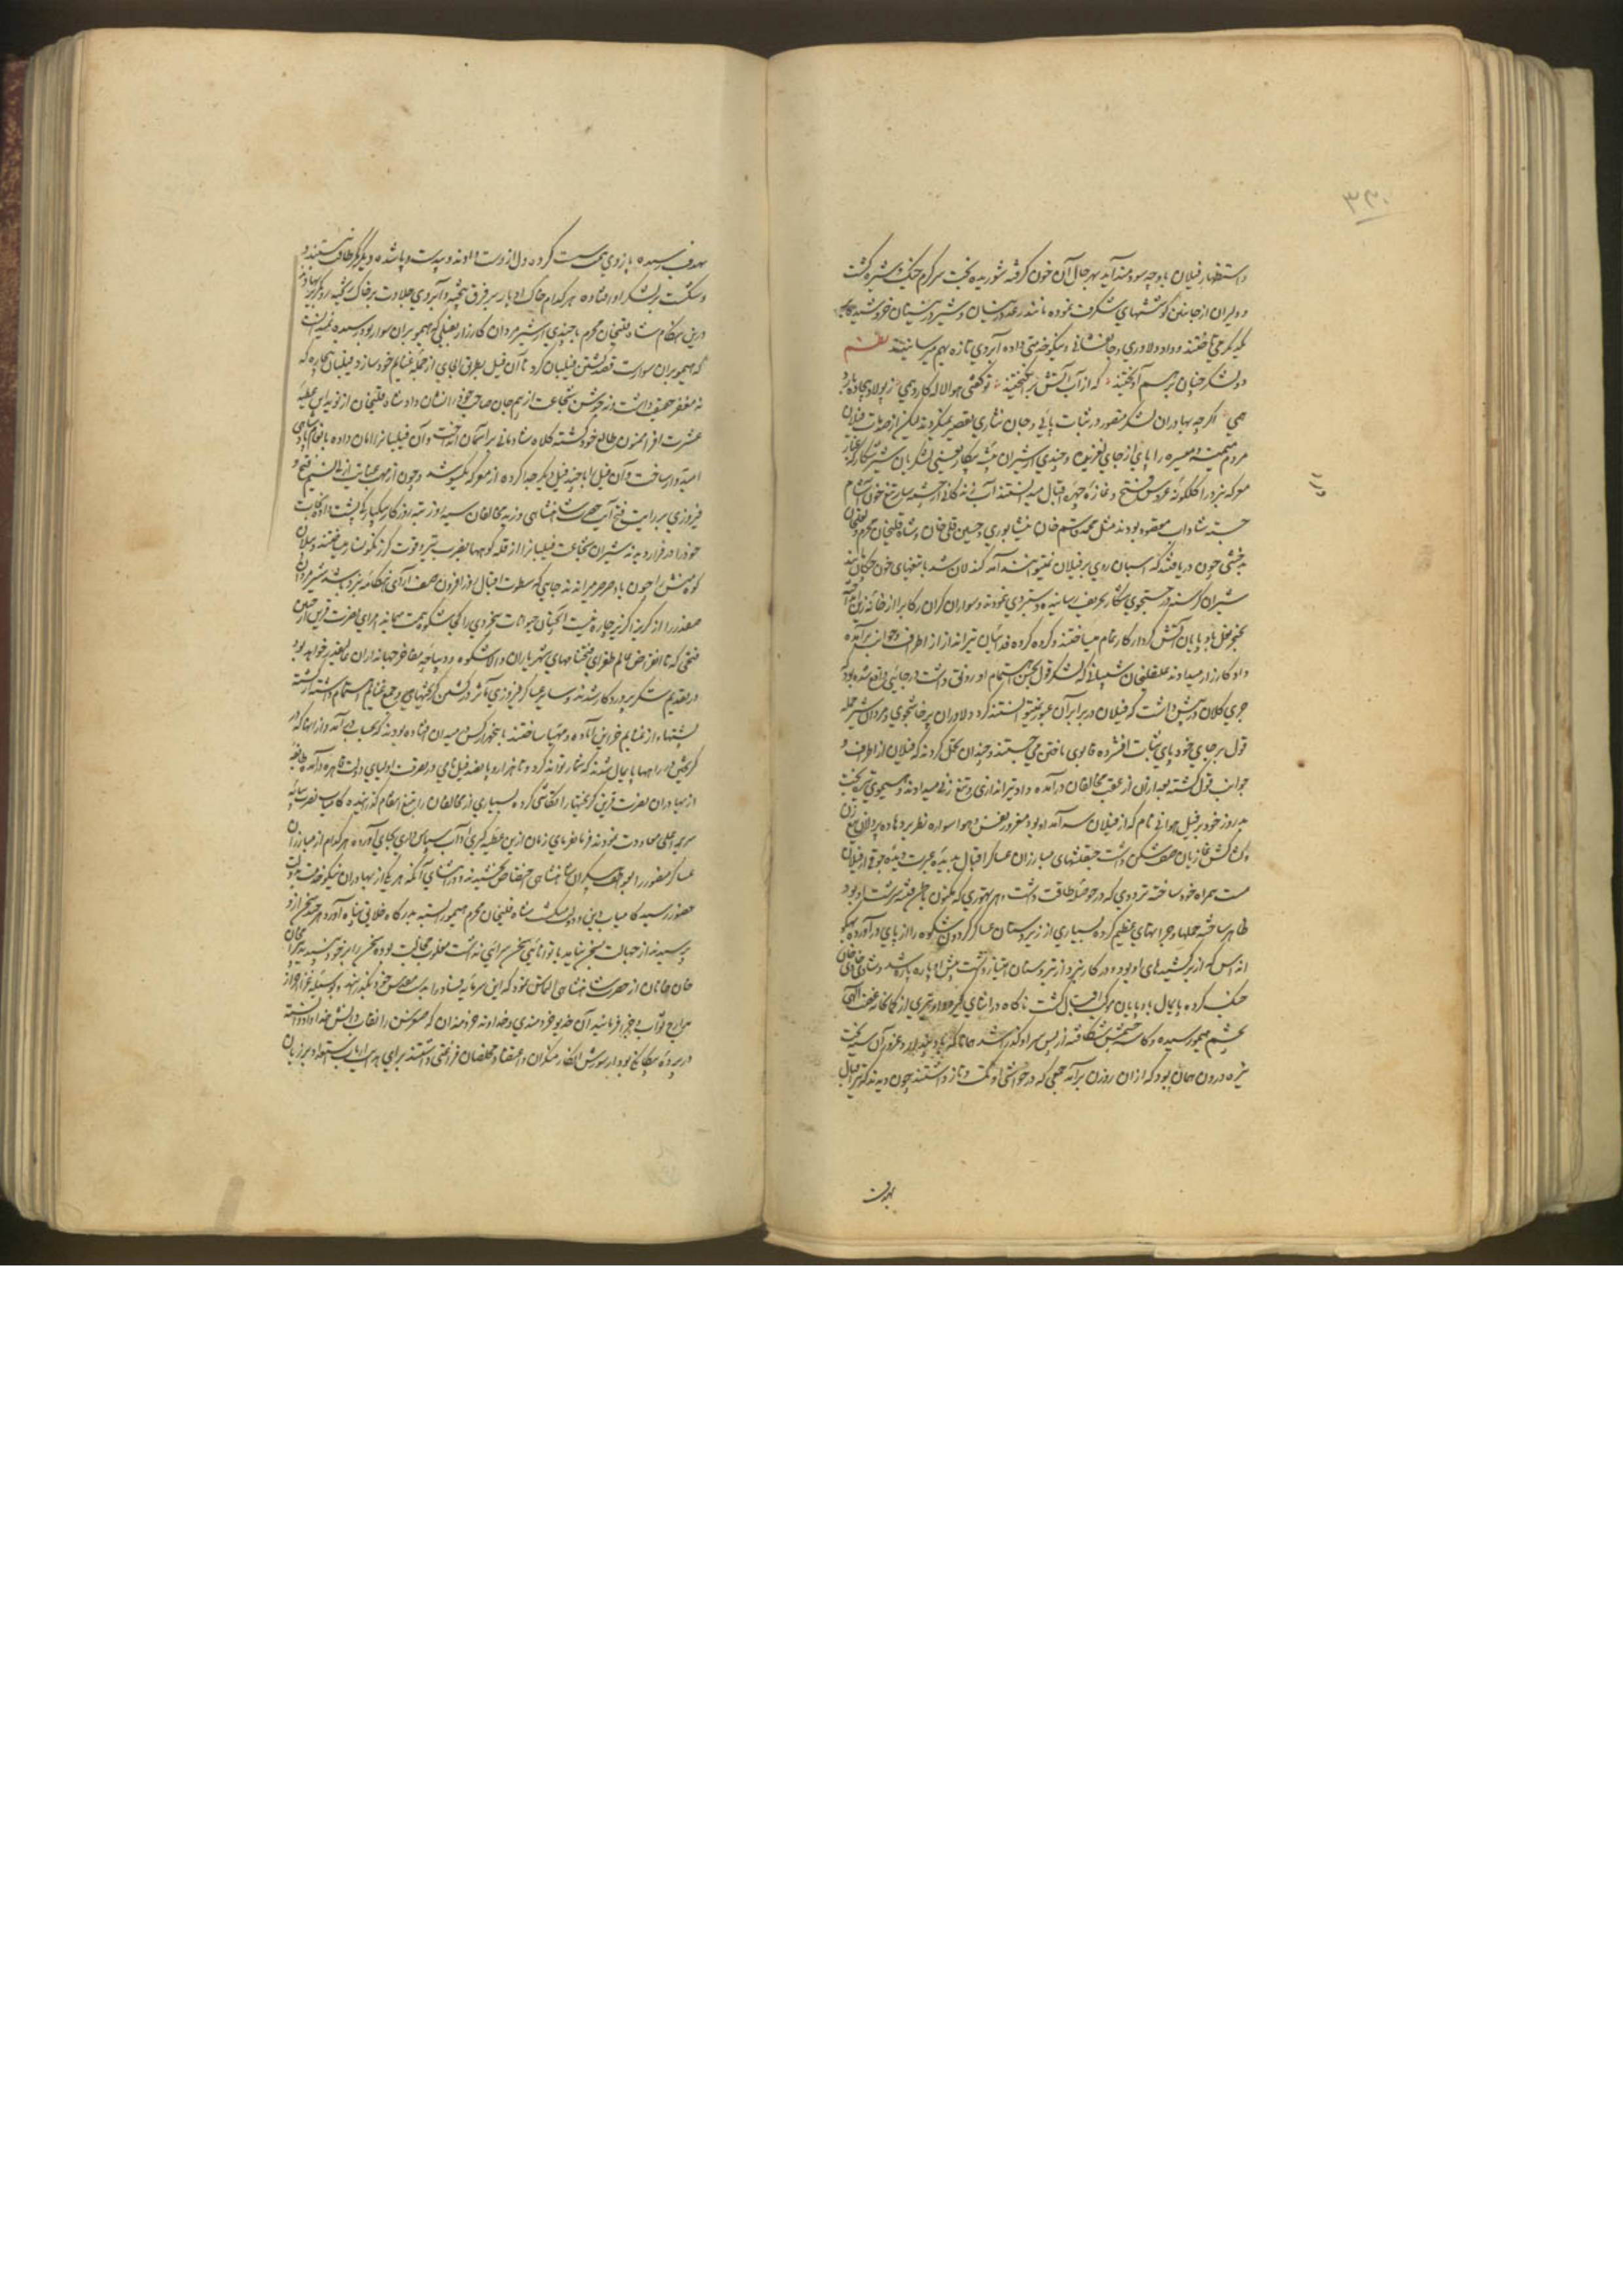 ۳۳۰
و استظهار فیلان با وچه سودمند آید بهر حال آن خون گرفته شوریده بخت سرگرم جنگ و ستیزه گشت
و دلیران از جانبین کوششهای شگرف نموده مانند رعد در نیسان و شیر در نیستان خروشیده
یکدیگر می تاختند و داد دلاوری و جانفشانی و نیکو خدمتی داده آبروی تازه بهم میرسانیدند نظم
دو لشکر چنان بر هم آویختند که از آب آتش برانگیختند تو گفتی هوا لاله کارد همی ز پولاد بیجاده بارد
همی اگرچه بهادران لشکر منصور در ثبات پائی و جان نثاری تقصیر نمیکردند لیکن از صدمات فیلان
مردم میمنه و میسره را پای از جای لغزیده و چندی از شیران بیشه پیکار یعنی لشکریان شیر شکار که غبار
معرکه نبرد را گلگونه عروس فتح و غازه چهره اقبال میدانستند آب زندگانی از چشمه سار تیغ خون آشام
جسته شاداب مقصود بودند مثل محمد قاسم خان نیشابوری و حسین قلی خان و شاه قلیخان محرم و لعلخان
بدخشی چون دریافتند که اسپان روی بر فیلان نمیتوانند آمد
شیران گرسنه در جستجوی شکار بحریف رسانیده دستبردی نمودند و سواران گران رکاب را از خانه زین
بخنجر لعل باد پایان آتش کردار کار تمام میساختند و گروه گروه فدائیان تیرانداز از اطراف و جوانب برآمده
داد کارزار میدادند علیقلیخان شیبانی که لشکر قول بحسن اهتمام او رونق داشت در جائی واقع شده بود
جری کلان در پیش داشت که فیلان در برابر آن عبور نمیتوانستند کرد دلاوران پرخاشجوی و مردان شیر حمله
قول بر جای خود پای ثبات افشرده قابوی تاختن می جستند و چندان تحمل کردند که فیلان از اطراف و
جوانب قول گشته بعد ازان از عقب مخالفان درآمده داد تیراندازی و تیغ زنی میدادند و هیموی تیره بخت
بد روز خود بر فیل هوائی نام که از فیلان سرآمد او بود مغرور نفس و هوا سواره نظر بر دمادم پردلان تیغ زن
و کشاکش غازیان صف شکن داشت چپقلشهای مبارزان عساکر اقبال بدیده عبرت دیده جوقی از فیلان
مست همراه خود ساخته تردوی که در حوصله طاقت داشت و هر تهوری که مکنون باطن فتنه سرشت او بود
ظاهر ساخته حملها و جرأتهای عظیم کرده بسیاری از زبردستان عساکر گردون شکوه را از پای درآورده بهگو
انداس که از برکشیدهای او بود و در کار نبرد از تردستان امتیاز داشت پیش او پاره پاره شد و شادی خان
جنگ کرده پایمال باد پایان موکب اقبال گشت ناگاه در اثنای گیرودار تیری از کمانخانه غضب الهی
بچشم هیمو رسیده و کاسه چشمش شکافته از پس سر او گذر کرد
تیره درون همان بود که ازان روزن برآمد جمعی که در حواشی او تگ و تاز داشتند چون دیدند که تیر اقبال
بهدف
بهدف رسیده بازوی همت سست کرده دل از دست دادند و بیدست و پا شده دیگر کمر طاقت نبستند و
شکست بر لشکر او افتاده هر کدام خاک ادبار بر فرق بیخته و آبروی جلادت بر خاک ریخته رو بگریز نهادند
درین هنگام شاه قلیخان محرم با چندی از شیر مردان کارزار بفیلی که هیمو بران سوار بود رسیده نمیدانست
که هیمو بران سوارست قصد کشتن فیلبان کرد تا آن فیل بطرق الجای از جمله غنایم خود سازد فیلبان بیچاره که
نه مغفر حصیف داشت و نه جوشن شجاعت از بیم جان صاحب خود را نشان داد شاه قلیخان از نوید این عطیه
عشرت افزا ممنون طالع خود گشته کلاه شادمانی بر آسمان انداخت و آن فیلبانرا امان داده بانعام پادشاهی
امیدوار ساخت و آن فیل را با چند فیل دیگر جدا کرده از معرکه بیکسو شد و چون از مهب عنایت ازلی نسیم فتح و
فیروزی بر رایت فتح آیت حضرت شاهنشاهی وزید مخالفان سیه روز تبه روزگار بیکبارگی پشت داده نجات
خود را در فرار دیدند شیران بیشه شجاعت فیلبانرا از قله کوهها بضرب تیر و قوت گرز نگونسار میساختند و فیلان
کوه منش را چون باد صرصر میراندند جایی که سطوت اقبال روز افزون صف آرای هنگامه نبرد باشد شیر مردان
صفدر را از گریز گزیر چاره نیست آنچنان حیوانات بیخرد
فتحی که تا انقراض عالم طغرای فتحنامهای شهریاران والاشکوه و دیباچه مفاخر جهانداران عالیقدر خواهد بود
در تقدیم شکر پروردگار شدند و سایر عساکر فیروزی مآثر در کشتن گریختها و جمع غنایم اهتمام داشته از کشته
پشتها و از غنایم خزاین آماده و مهیا ساختند
گریختن در راهها پایمال شدند که شمار تواند کرد و تا هزار و پانصد فیل نامی در تصرف اولیای دولت قاهره درآمد طایفه
از بهادران نصرت قرین گریختها را تگامیشی کرده بسیاری از مخالفان را بتیغ انتقام گذرانیده کامیاب نصرت بپایه
سریر اعلی معاودت نمودند فرمانفرمای زمان ازین عطیه کبری آداب سپاس داری بجای آورده هر کدام از مبارزان
عساکر منصور را بعواطف بیکران شاهنشاهی اختصاص بخشیدند و در اثنای آنکه هر یک از بهادران نیکو خدمت بدولت
حضور رسید کامیاب دین و دولت میگشت شاه قلیخان محرم هیمو را بسته بدرگاه خلایق پناه آورد هر چند سخن ازو
پرسیدند از جهالت سخن
خان خانان از حضرت شاهنشاهی التماس نمود که این سرمایه فساد را بدست مقدس خود بگذرانند و بوسیله غزا احراز
مدارج ثواب و جزا فرمانید آن خدیو خردمندی و خداوند خردمندان که حسن کنش را نقاب دانش خداداد دانسته
در پرده بیگانگی بود